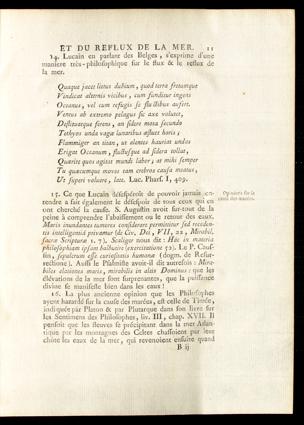 ET DU REFLUX DE LA MER. 11
14. Lucain en parlant des Belges, s'exprime d'une
maniere très-philosophique sur le flux & le reflux de
la mer.
Quaque jacet littus dubium, quod terra fretumque
Vindicat alternis vicibus, cum funditur ingens
Oceanus, vel cum refugis se fluctibus aufert.
Ventus ab extremo pelagus sic axe volutet,
Destituatque ferens, an sidere mota secundo
Tethyos unda vagæ lunaribus æstuet horis,
Flammiger an titan, ut alentes hauriat undas
Erigat Oceanum, fluctusque ad sidera tollat,
Quærite quos agitat mundi labor, at mihi semper
Tu quæcumque moves tam crebros causa meatus,
Ut superi voluere, late. Luc. Phars. I, 409.
15. Ce que Lucain désespéroit de pouvoir jamais en-
tendre a fait également le désespoir de tous ceux qui en
ont cherché la cause. S. Augustin avoit sur-tout de la
peine à comprendre l'abaissement ou le retour des eaux.
Maris inundantes tumores considerare permittitur sed receden-
tis intelligentiâ privamur (de Civ. Dei, VII, 22, Mirabil.
sacræ Scripturæ 1. 7). Scaliger nous dit: Hoc in materia
philosophiam ipsam balbutire (exercitatione 52). Le P. Caus-
sin, sepulcrum esse curiositatis humanæ (dogm. de Resur-
rectione). Aussi le Psalmiste avoit-il dit autrefois: Mira-
biles elationes maris, mirabilis in altis Dominus: que les
élévations de la mer sont surprenantes, que la puissance
divine se manifeste bien dans les eaux!
16. La plus ancienne opinion que les Philosophes
ayent hazardé sur la cause des marées, est celle de Timée,
indiquée par Platon & par Plutarque dans son livre sur
les Sentimens des Philosophes, liv. III, chap. XVII. Il
pensoit que les fleuves se précipitant dans la mer Atlan-
tique par les montagnes des Celtes chassoient par leur
chûte les eaux de la mer, qui revenoient ensuite quand
B ij
Opinions sur la
cause des marées.